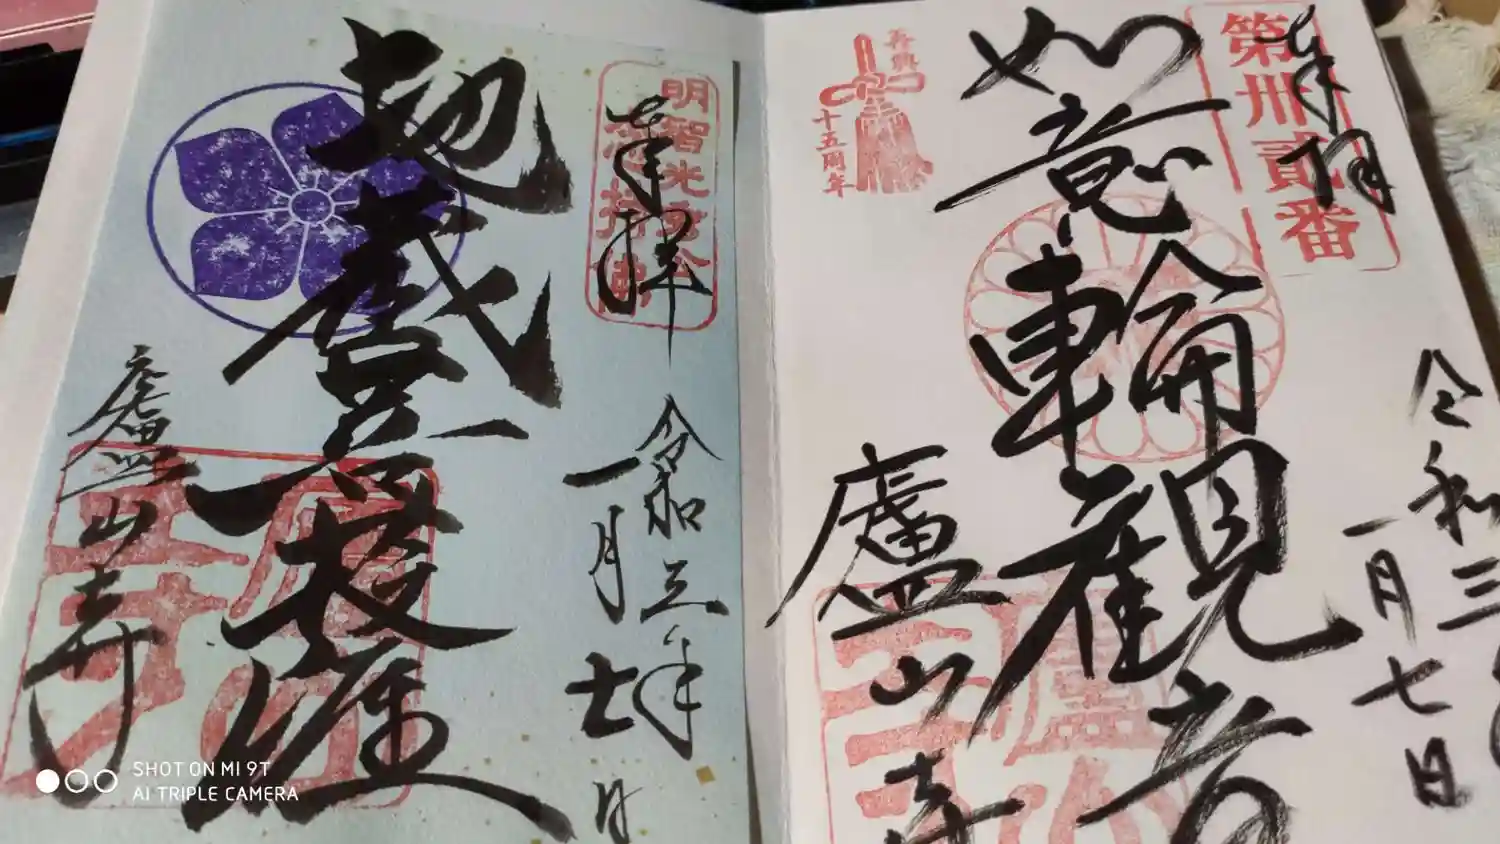 第卅貳番
奉拝
如意
輪
車
観音
再興
十五周年
令和三年
一月七日
廬山寺
明智光秀公
念持佛
奉拝
地蔵菩薩
令和三年
一月七日
廬山寺
SHOT ON MI 9T
AI TRIPLE CAMERA